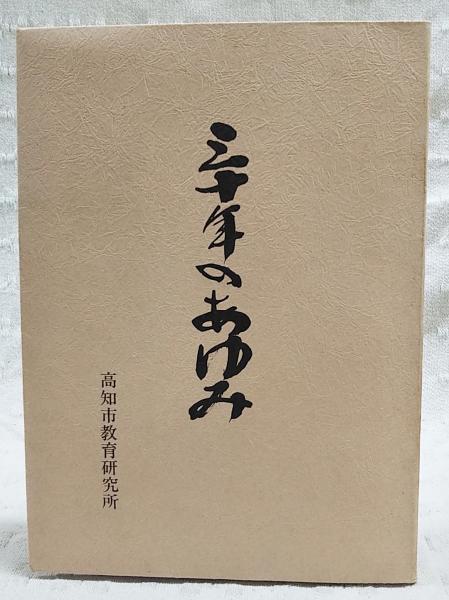 三十年のあゆみ
高知市教育研究所